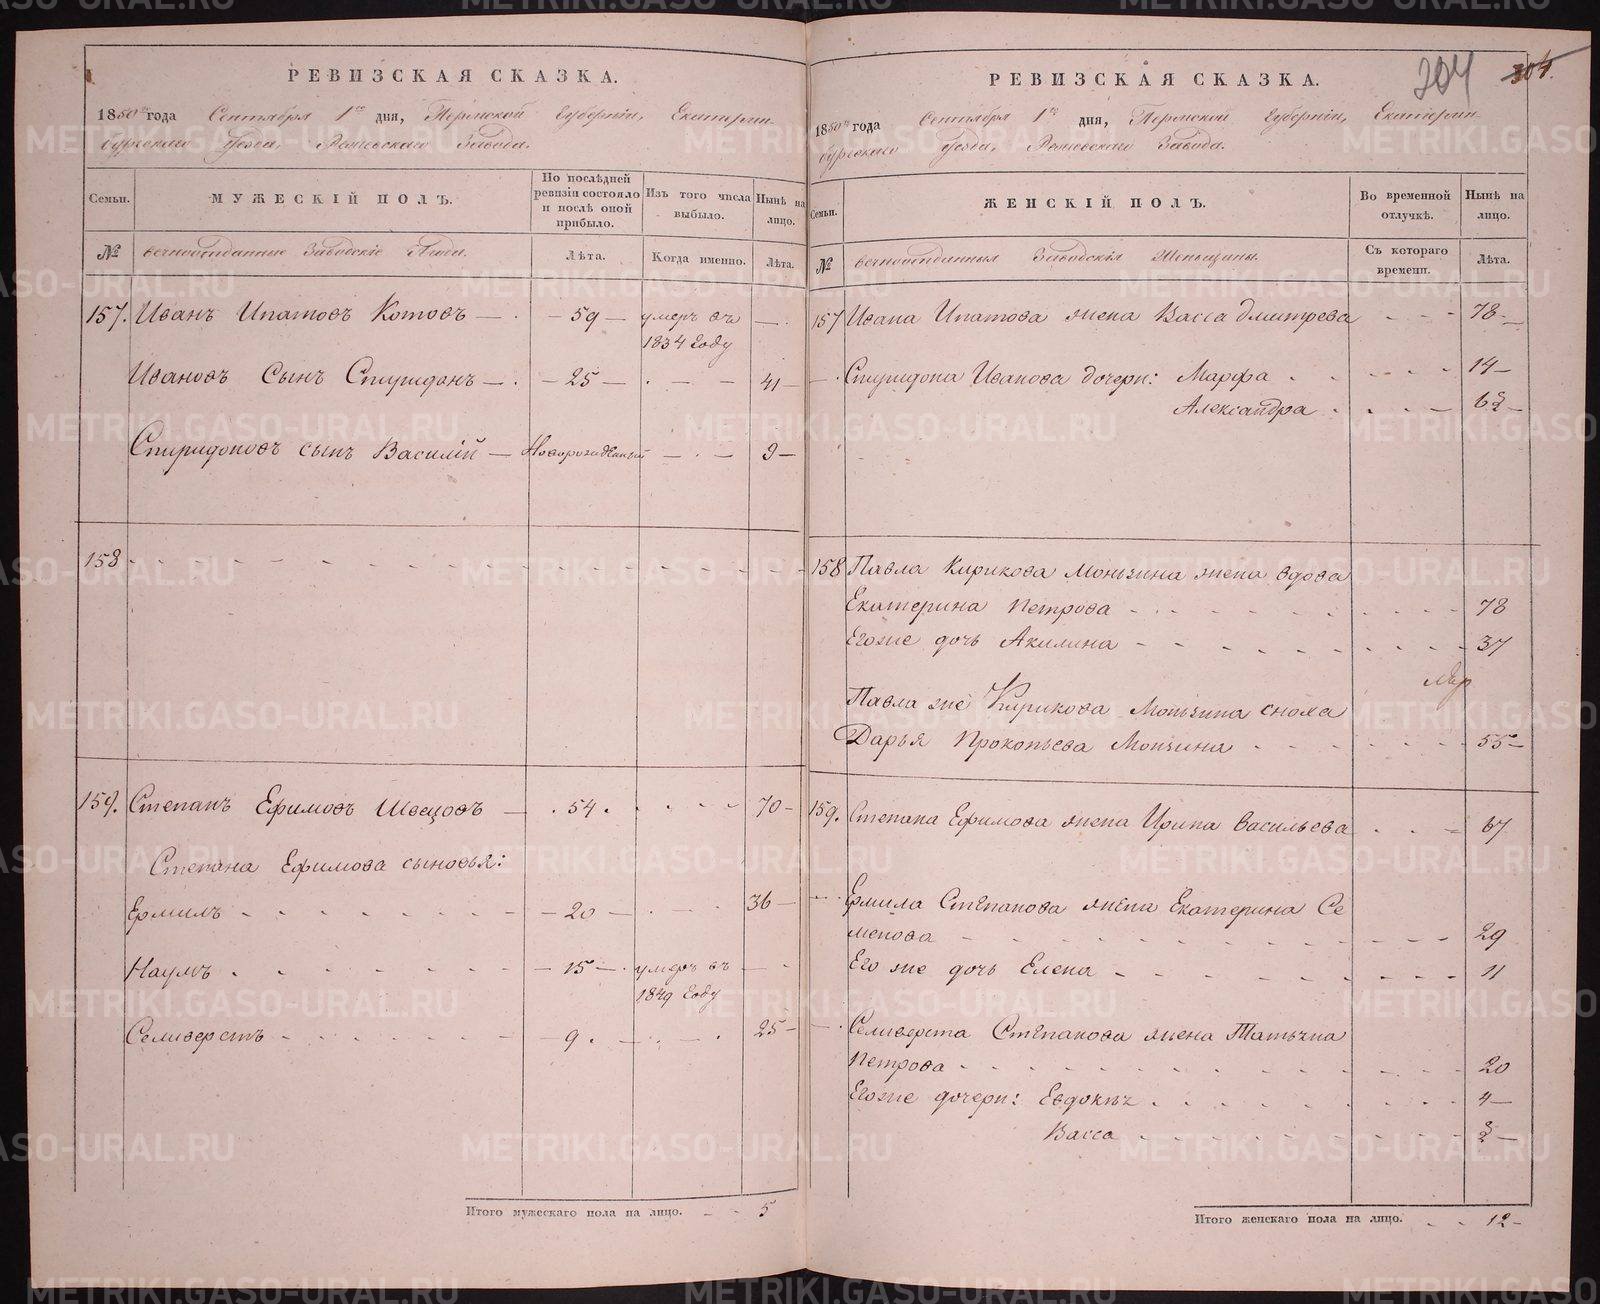 РЕВИЗСКАЯ СКАЗКА.
1850 года Сентября 1го дня, Пермской Губерніи, Екатерин
бургскаго Уезда, Завода.
Семьи.
МУЖЕСКІЙ ПОЛЪ.
По послѣдней
ревизіи состояло
и послѣ оной
прибыло.
Изъ того числа
выбыло.
Нынѣ на
лицо.
№
вечноотданные Заводскіе Люди.
Лѣта.
Когда именно.
Лѣта.
157. Иванъ Ипатовъ Котовъ — 59 — умеръ въ
1834 Году
Ивановъ Сынъ Спиридонъ — 25 — 41 —
Спиридоновъ сынъ Василій — Новорожденный — 9 —
158
159. Степанъ Ефимовъ Швецовъ — 54 70 —
Степана Ефимова сыновья:
Ермилъ — 20 — 36 —
Наумъ — 15 — умеръ въ
1849 Году
Селиверстъ 9 25 —
Итого мужескаго пола на лицо. 5
РЕВИЗСКАЯ СКАЗКА.
204 304
1850 года Сентября 1го дня, Пермской Губерніи, Екатерин
бургскаго Уезда, Завода.
Семьи.
ЖЕНСКІЙ ПОЛЪ.
Во временной
отлучкѣ.
Нынѣ на
лицо.
№
вечноотданныя Заводскія Женьщины.
Съ котораго
времени.
Лѣта.
157 Ивана Ипатова жена Васса Дмитрева 78
Спиридона Иванова дочери: Марфа 14
Александра
158 Павла Кирикова Моньзина жена вдова
Екатерина Петрова 78
Егоже дочь Акилина 37
Павла же Кирикова Моньзина сноха
Дарья Прокопьева 55
159. Степана Ефимова жена Ирина Васильева 67
Ермила Степанова жена Екатерина Се
менова 29
Его же дочь Елена 11
Селиверста Степанова жена Татьяна
Петрова 20
Егоже дочери: Евдокія 4
Васса
Итого женскаго пола на лицо. 12
METRIKI.GASO-URAL.RU